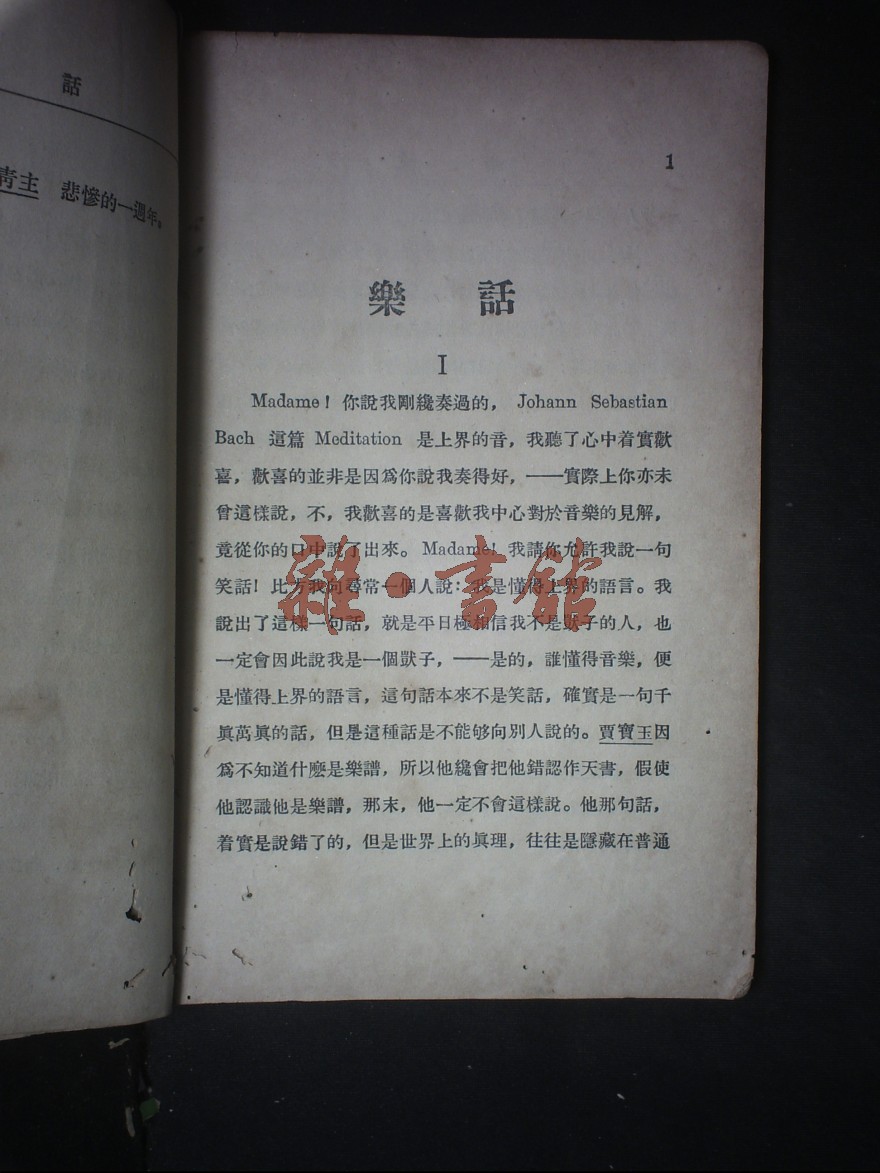 話
青主 悲慘的一週年。
1
樂 話
I
Madame! 你說我剛纔奏過的, Johann Sebastian
Bach 這篇 Meditation 是上界的音, 我聽了心中着實歡
喜, 歡喜的並非是因爲你說我奏得好, ——實際上你亦未
曾這樣說, 不, 我歡喜的是喜歡我中心對於音樂的見解,
竟從你的口中說了出來。Madame! 我請你允許我說一句
笑話! 比方我向尋常一個人說: 我是懂得上界的語言。我
說出了這樣一句話, 就是平日極相信我不是獃子的人, 也
一定會因此說我是一個獃子, ——是的, 誰懂得音樂, 便
是懂得上界的語言, 這句話本來不是笑話, 確實是一句千
眞萬眞的話, 但是這種話是不能够向別人說的。賈寶玉因
爲不知道什麽是樂譜, 所以他纔會把他錯認作天書, 假使
他認識他是樂譜, 那末, 他一定不會這樣說。他那句話,
着實是說錯了的, 但是世界上的眞理, 往往是隱藏在普通
雜·書館